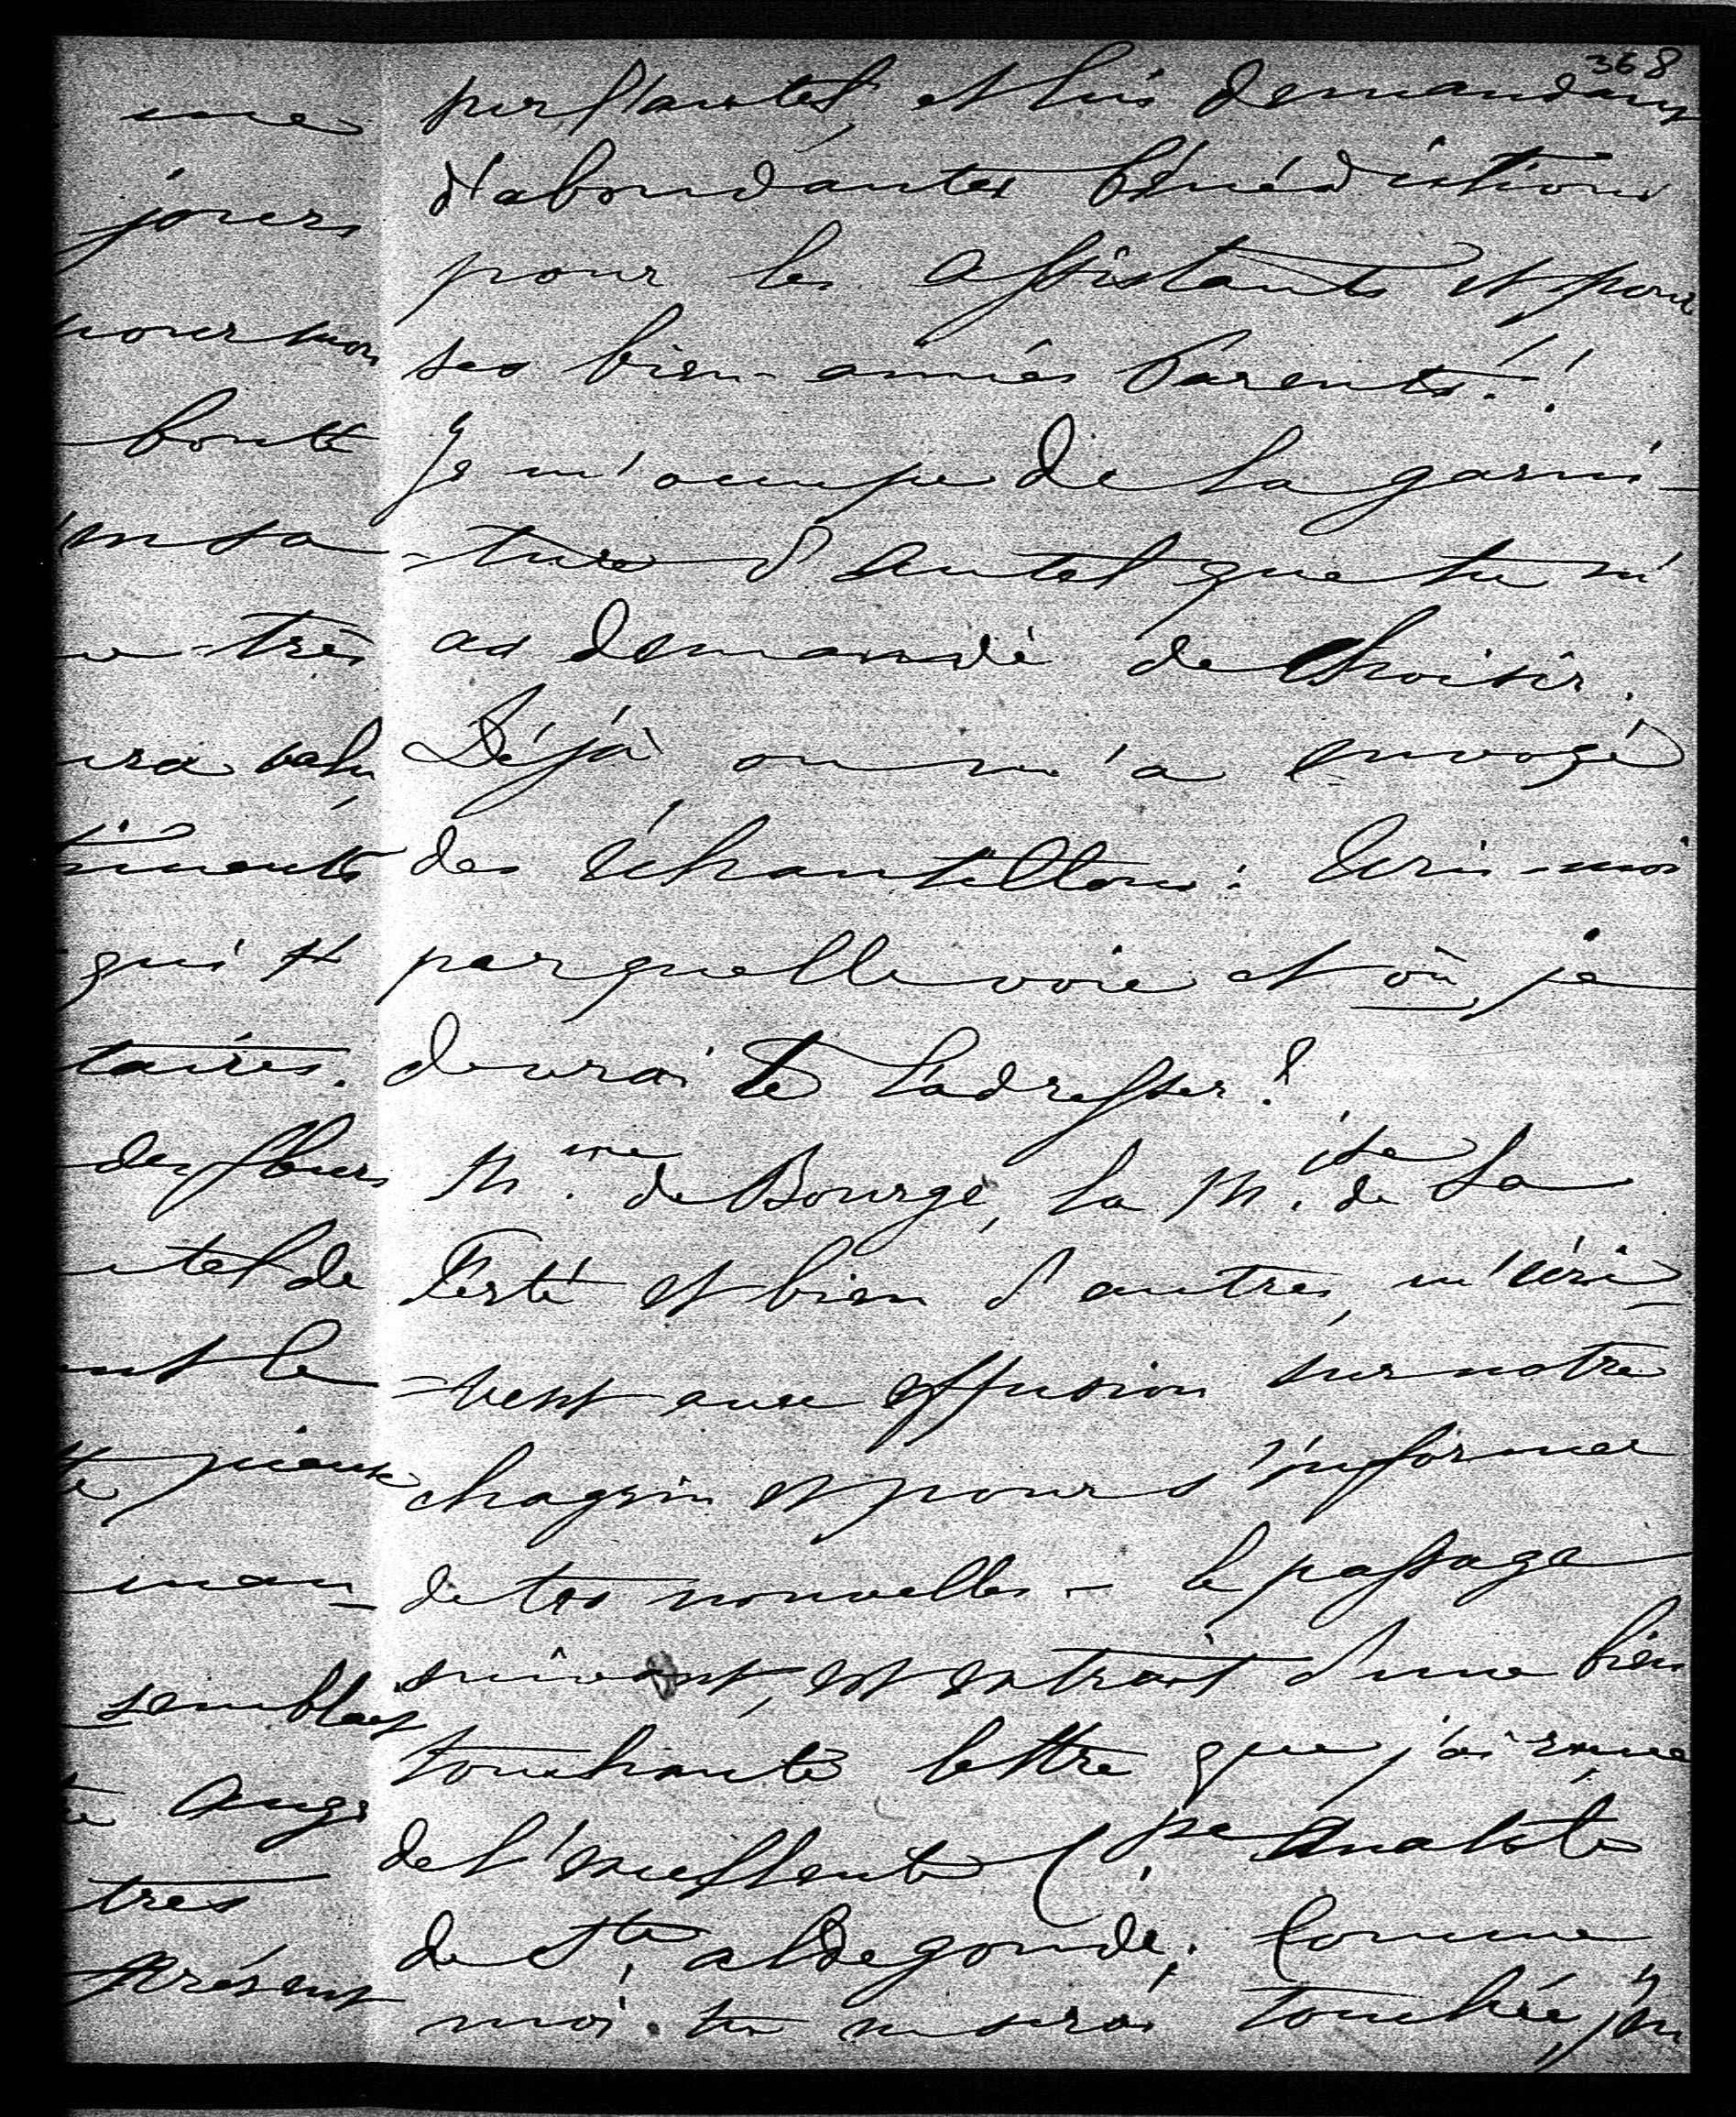 368
sur l'autel, et lui demandant
d'abondantes bénédictions
pour les assistants et pour
ses bien-aimés Parents!!
Je m'occupe de la garni-
-ture d'Autel que tu m'
as demandé de Choisir.
Déjà on m'a envoyé
des échantillons: Ecris-moi
par quelle voie et où, je
devrai te l'adresser?
Mme de Bourgé, la M.ise de La
Ferté et bien d'autres, m'écri-
-vent avec effusion sur notre
chagrin et pour s'informer
de tes nouvelles - le passage
suivant, est extrait d'une bien
touchante lettre que j'ai reçue
de l'excellente Csse
de Ste Aldegonde; Comme
moi tu en seras touchée,
une
jours
pour mon
bonté
sa
très
valu
qui et
taires.
des fleurs
tel de
le
pieuse
man-
semblant
Ange
très
présent